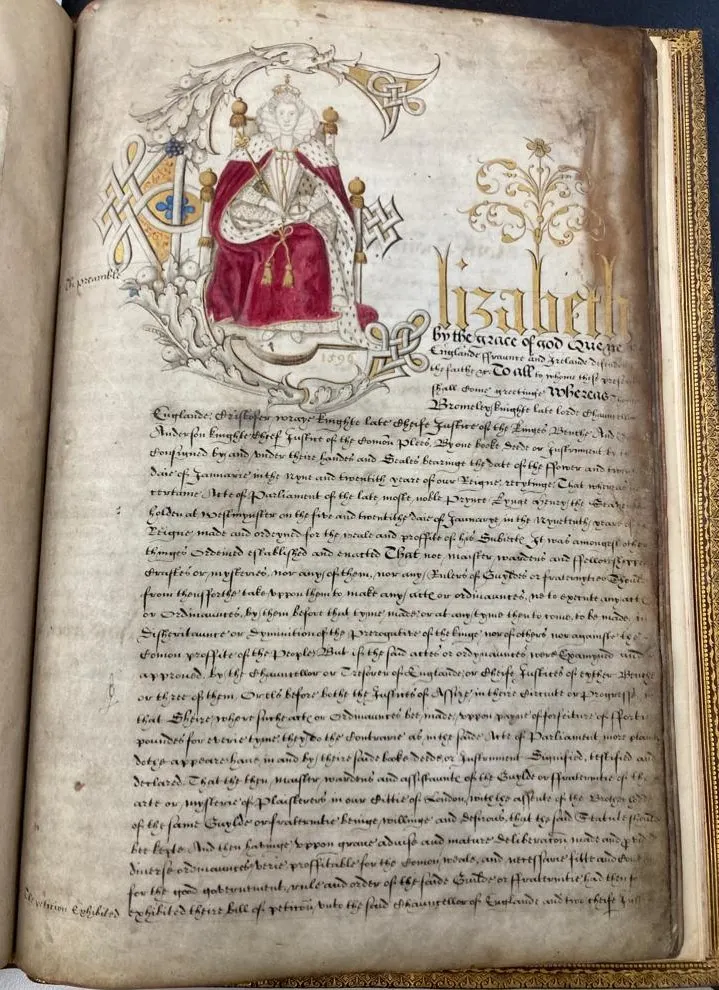 1596
The preamble
Elizabeth
by the grace of god Quene
Englande ffraunce and Irelande defendo
the faithe &c To all to whome these presente
shall Come greetinge Whereas
Bromeley knighte late lord Chauncellor
Englande, Cristofer wraye knighte late Cheife Justice of the Kinges Benche And
Anderson knighte Cheef Justice of the Comon Plees, By one booke deede or Instrument
Consigned by and vnder theire handes and Seales bearinge the date of the ffower and twen
daie of Januarie in the Nyne and twentith yeare of our Reigne, recytinge That wheras
certaine Acte of Parliament of the late moste noble Prynce kynge Henry the Seaven
holden at westmynster on the five and twentithe daie of Januarye in the Nynetenth yeare of
Reigne made and ordeynd for the weale and proffite of his Subiects It was amongest other
thinges Ordeined established and enacted That noe maister wardens and ffellowshippes
Craftes or mysteries, nor any of them, nor any Rulers of Guyldes or fraternities should
from thensforthe take vppon them to make any acte or ordinaunces, ne to execute any act
or Ordinaunces, by them before that tyme made, or at any tyme then to come, to be made, in
Disheritaunce or dyminition of the Prerogative of the kinge nor of others nor againste the
Comon proffite of the People, But if the said actes or ordynaunces were Examyned and
approved, by the Chauncellor or Tresorer of Englande, or Cheife Justices of eyther Benche
or three of them, Or els before bothe the Justices of Assize in theire Circuite or Progresse
that Sheire where suche acte or Ordinaunces bee made, vppon payne of forfeiture of ffortie
poundes for everie tyme they do the Contrarie as in the saide Acte of Parliament more plain
dothe appeare, have in and by theire saide booke deede or Instrument Signified, testified and
declared, That the then maister wardens and assistaunte of the Guylde or ffraternitie of the
arte or mysterie of Plaisterers in our Cittie of London, with the assente of the Bretherhed
of the same Guylde or fraternitie beinge willinge and desirous, that the said Statute should
bee kepte, And then havinge vppon grave advise and mature deliberacon made and
diverse ordinaunces verie proffitable for the Comon weale, and necessarie fitt and
for the good governement, rule and order of the saide Guilde or ffraternitie had then
The peticion Exhibited
exhibited theire bill of peticon vnto the said Chauncellor of Englande and two cheife Jus